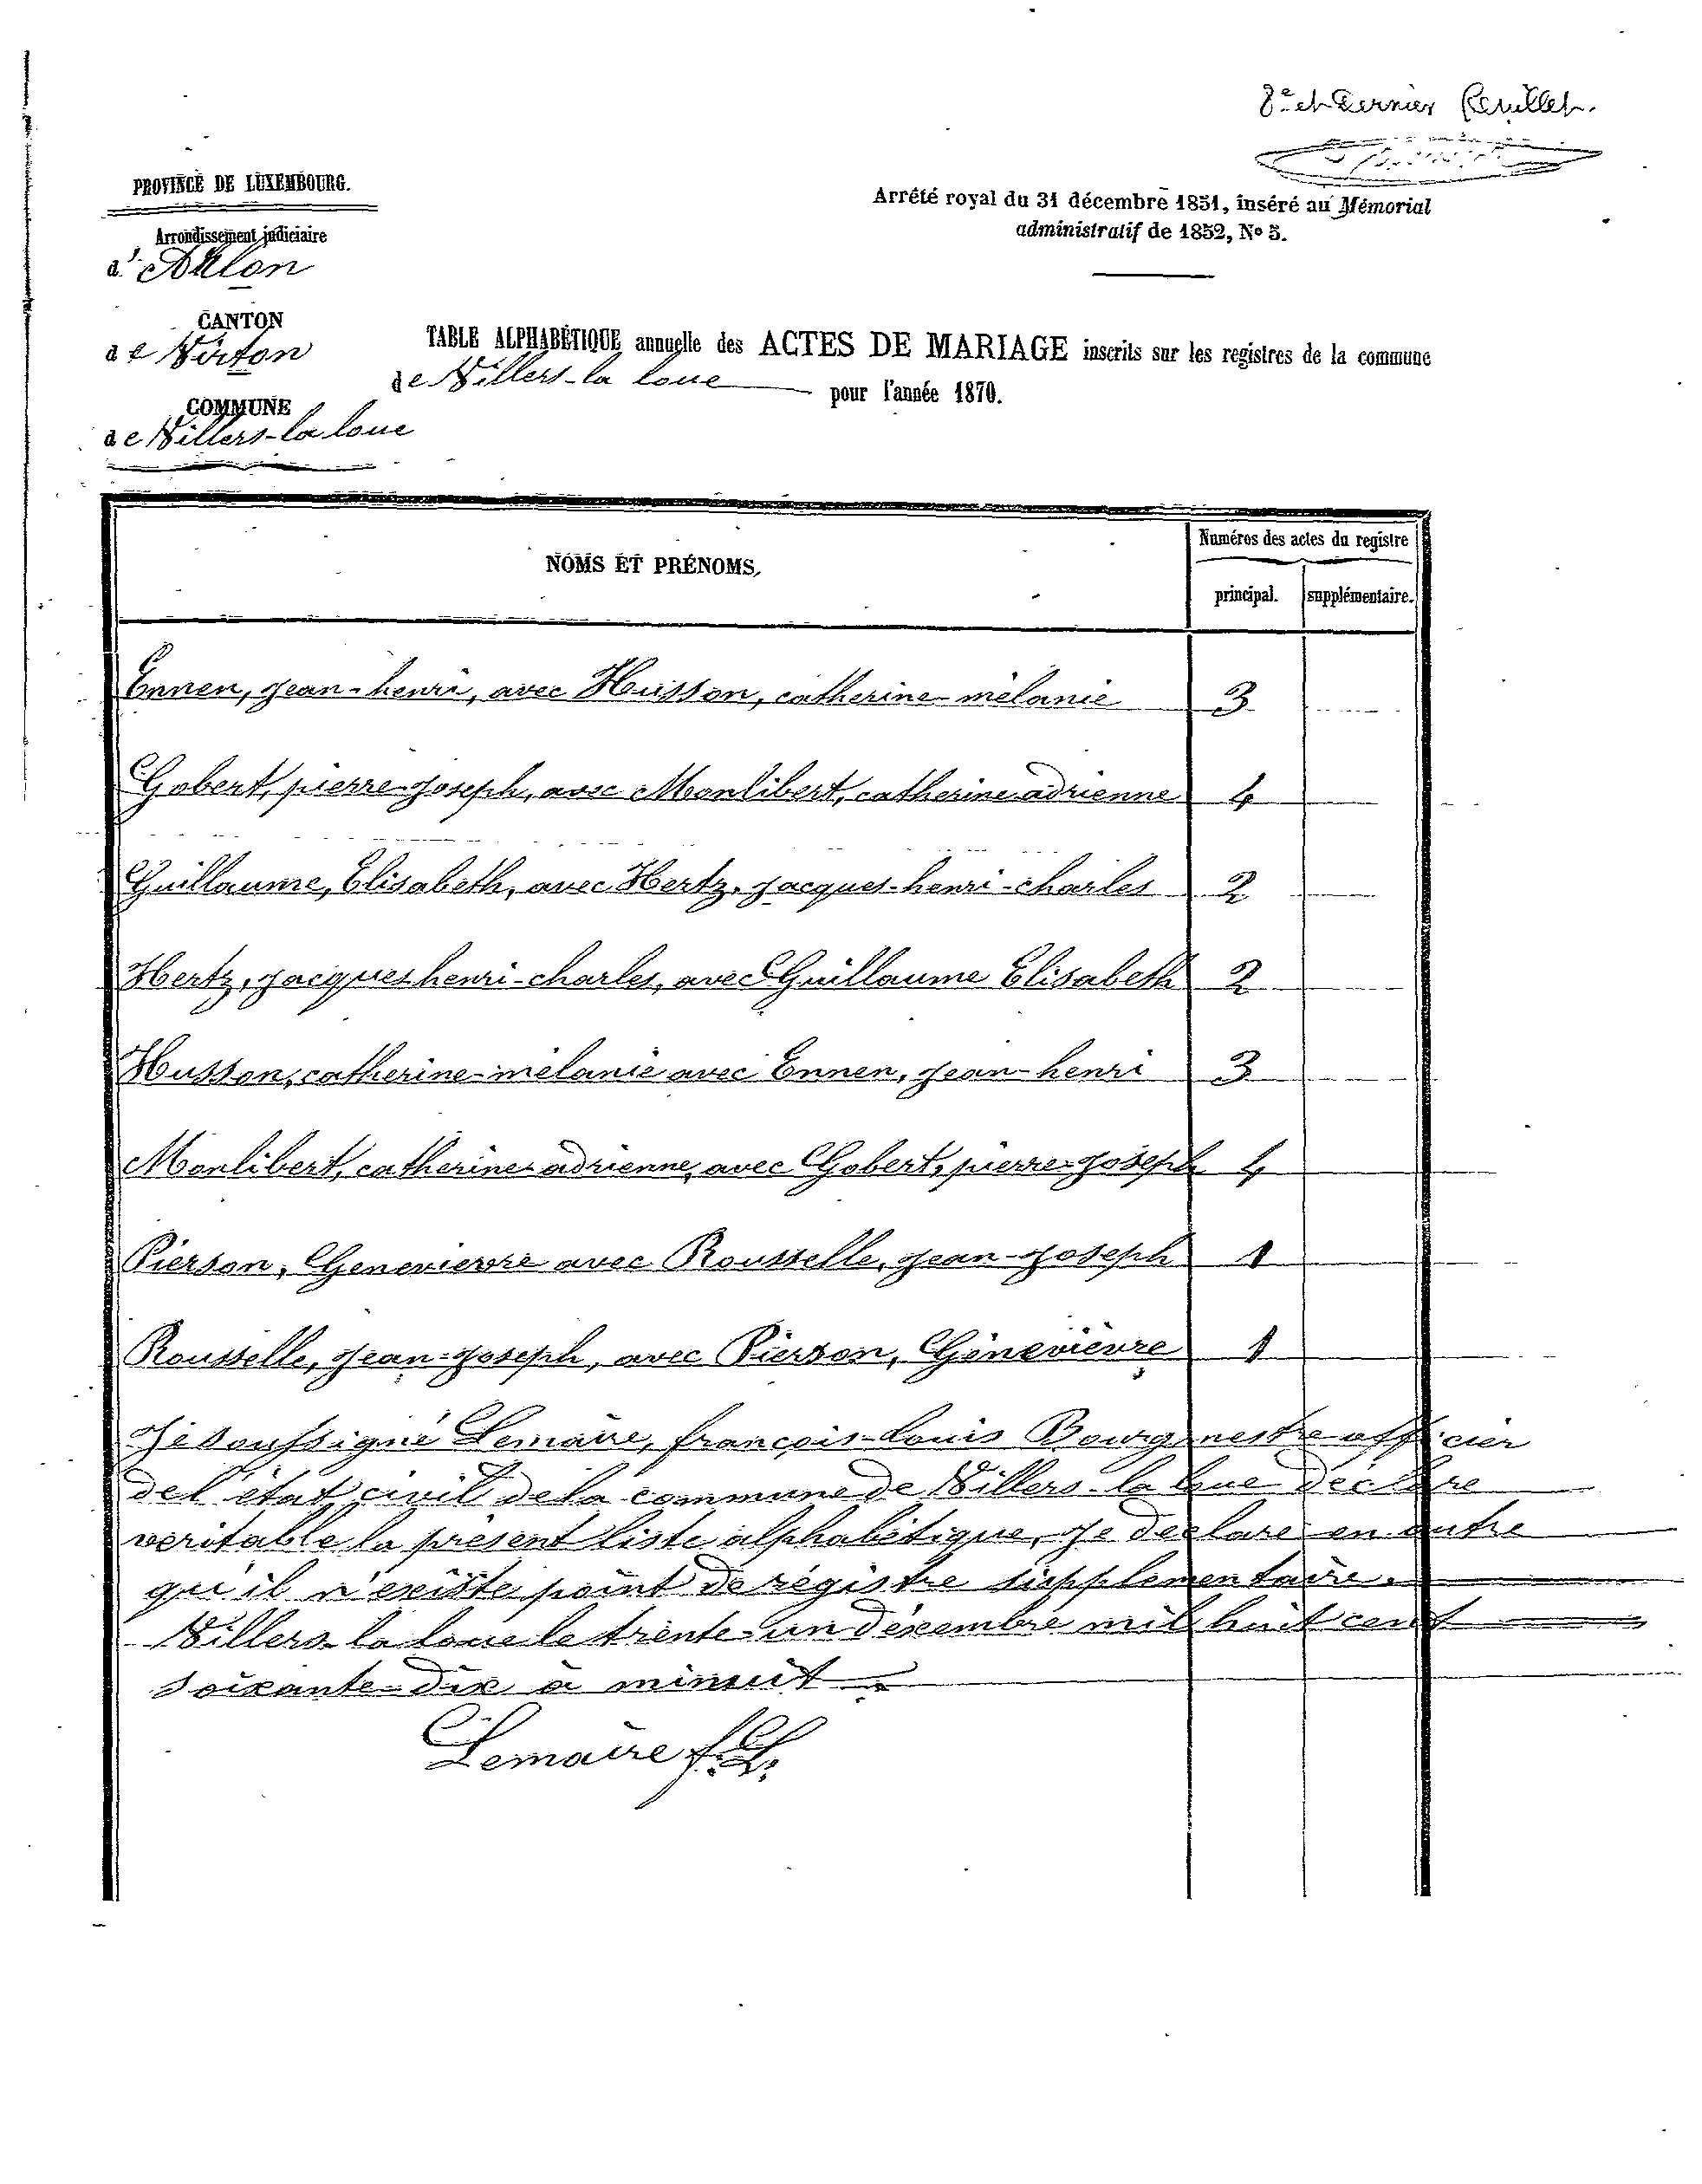 8e et dernier feuillet.
PROVINCE DE LUXEMBOURG.
Arrondissement judiciaire
d'Arlon
CANTON
de Virton
COMMUNE
de Villers-la loue
Arrêté royal du 31 décembre 1851, inséré au Mémorial
administratif de 1852, No 5.
TABLE ALPHABÉTIQUE annuelle des ACTES DE MARIAGE inscrits sur les registres de la commune
de Villers-la loue pour l'année 1870.
NOMS ET PRÉNOMS.
Numéros des actes du registre
principal. supplémentaire.
Ennen, jean-henri, avec Husson, catherine-mélanie 3
Gobert, pierre-joseph, avec Monlibert, catherine adrienne 4
Guillaume, Elisabeth, avec Hertz, jacques-henri-charles 2
Hertz, jacques henri-charles, avec Guillaume Elisabeth 2
Husson, catherine-mélanie avec Ennen, jean-henri 3
Monlibert, catherine-adrienne, avec Gobert, pierre-joseph 4
Pierson, Genevievre avec Rousselle, jean-joseph 1
Rousselle, jean-joseph, avec Pierson, Génevièvre 1
Je soussigné Lemaire, françois-louis Bourgmestre officier
de l'état civil de la commune de Villers-la loue déclare
veritable la présent liste alphabétique, je declare en outre
qu'il n'existe point de régistre supplementaire.
Villers-la loue le trente-un décembre mil huit cent
soixante-dix à minuit
Lemaire f. L.